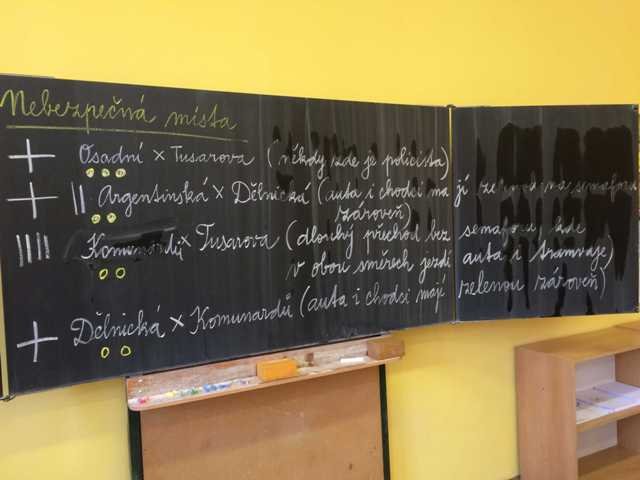 Nebezpečná místa
Osadní × Tusarova (někdy zde je policista)
Argentinská × Dělnická (auta i chodci mají na semaforu
zároveň)
Komunardů × Tusarova (dlouhý přechod bez semaforu, kde
v obou směrech jezdí auta i tramvaje)
Dělnická × Komunardů (auta i chodci mají zelenou zároveň)